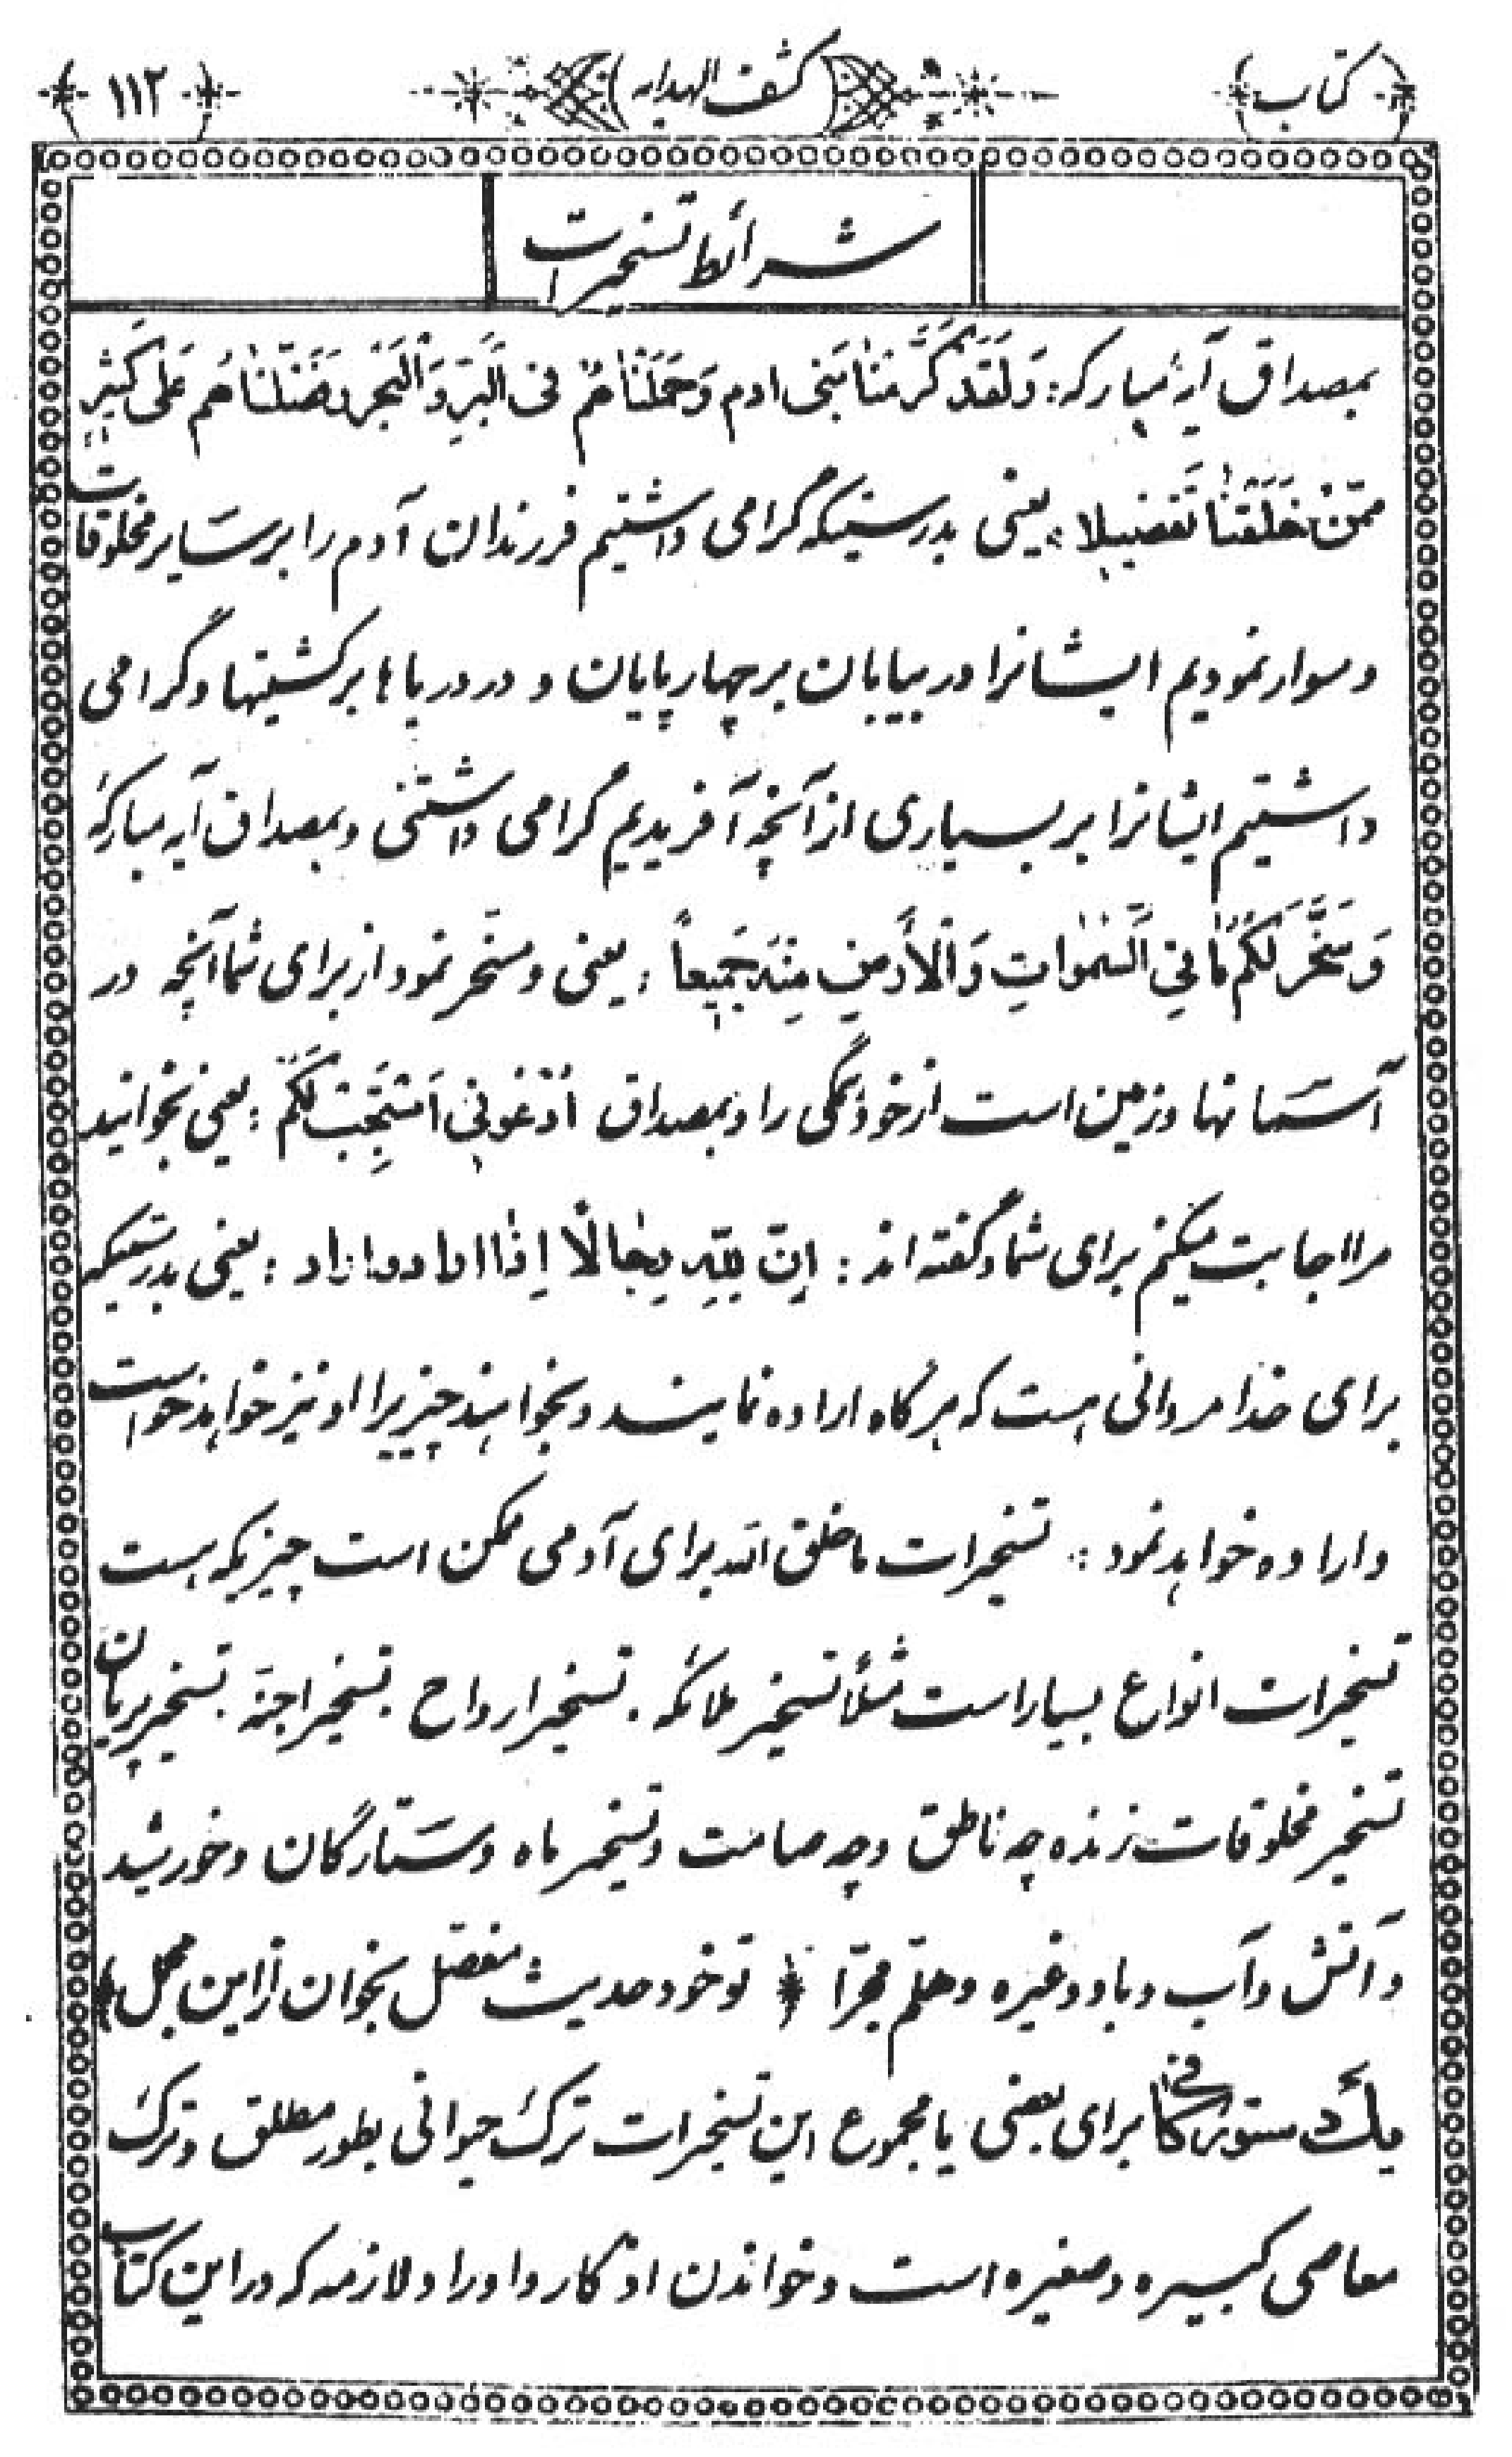 کتاب
کشف الهدایه
۱۱۲
شرائط تسخیرات
بمصداق آیهٔ مبارکه: وَلَقَدْ کَرَّمنٰا بَنی ادم وَحَمَلْنٰاهُمْ فی الْبَرِّ وَالْبَحْرِ وفَضَّلْنٰاهُم عَلی کَثیرٍ
مِمَّنْ خَلَقْنٰا تَفضیلا، یعنی بدرستیکه گرامی داشتیم فرزندان آدم را بر سایر مخلوقات
و سوار نمودیم ایشانرا در بیابان بر چهارپایان و در دریاها بر کشتیها و گرامی
داشتیم ایشانرا بر بسیاری از آنچه آفریدیم گرامی داشتنی و بمصداق آیه مبارکهٔ
وَسَخَّرَ لَکُمْ مٰا فِی السَّمٰوٰاتِ وَالْأَرضِ مِنْهُ جَمیعاً، یعنی و مسخر نمود از برای شما آنچه در
آسمانها و زمین است از خود همگی را و بمصداق اُدْعُونی اَسْتَجِبْ لَکُمْ: یعنی بخوانید
مرا اجابت میکنم برای شما و گفته اند: اِنّ لِلّهِ رِجٰالًا اِذٰا ارادوا اراد: یعنی بدرستیکه
برای خدا مردانی هست که هر گاه اراده نمایند و بخواهند چیزیرا او نیز خواهد خواست
و اراده خواهد نمود: تسخیرات ما خلق الله برای آدمی ممکن است چیزیکه هست
تسخیرات انواع بسیار است مثلاً تسخیر ملائکه. تسخیر ارواح. تسخیر اجنّه. تسخیر پریان
تسخیر مخلوقات زنده چه ناطق و چه صامت و تسخیر ماه و ستارگان و خورشید
و آتش و آب و باد و غیره و هلمّ جرّا * تو خود حدیث مفصّل بخوان از این مجمل *
یک دستور برای بعضی یا مجموع این تسخیرات ترک حیوانی بطور مطلق و ترک
معاصی کبیره و صغیره است و خواندن اذکار و اوراد لازمه که در این کتاب